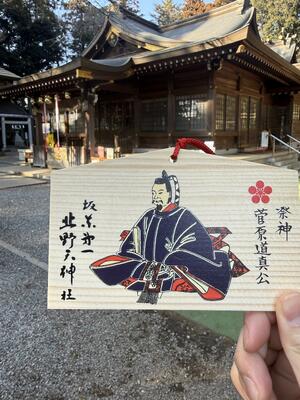 祭神
菅原道真公
坂東第一
北野天神社